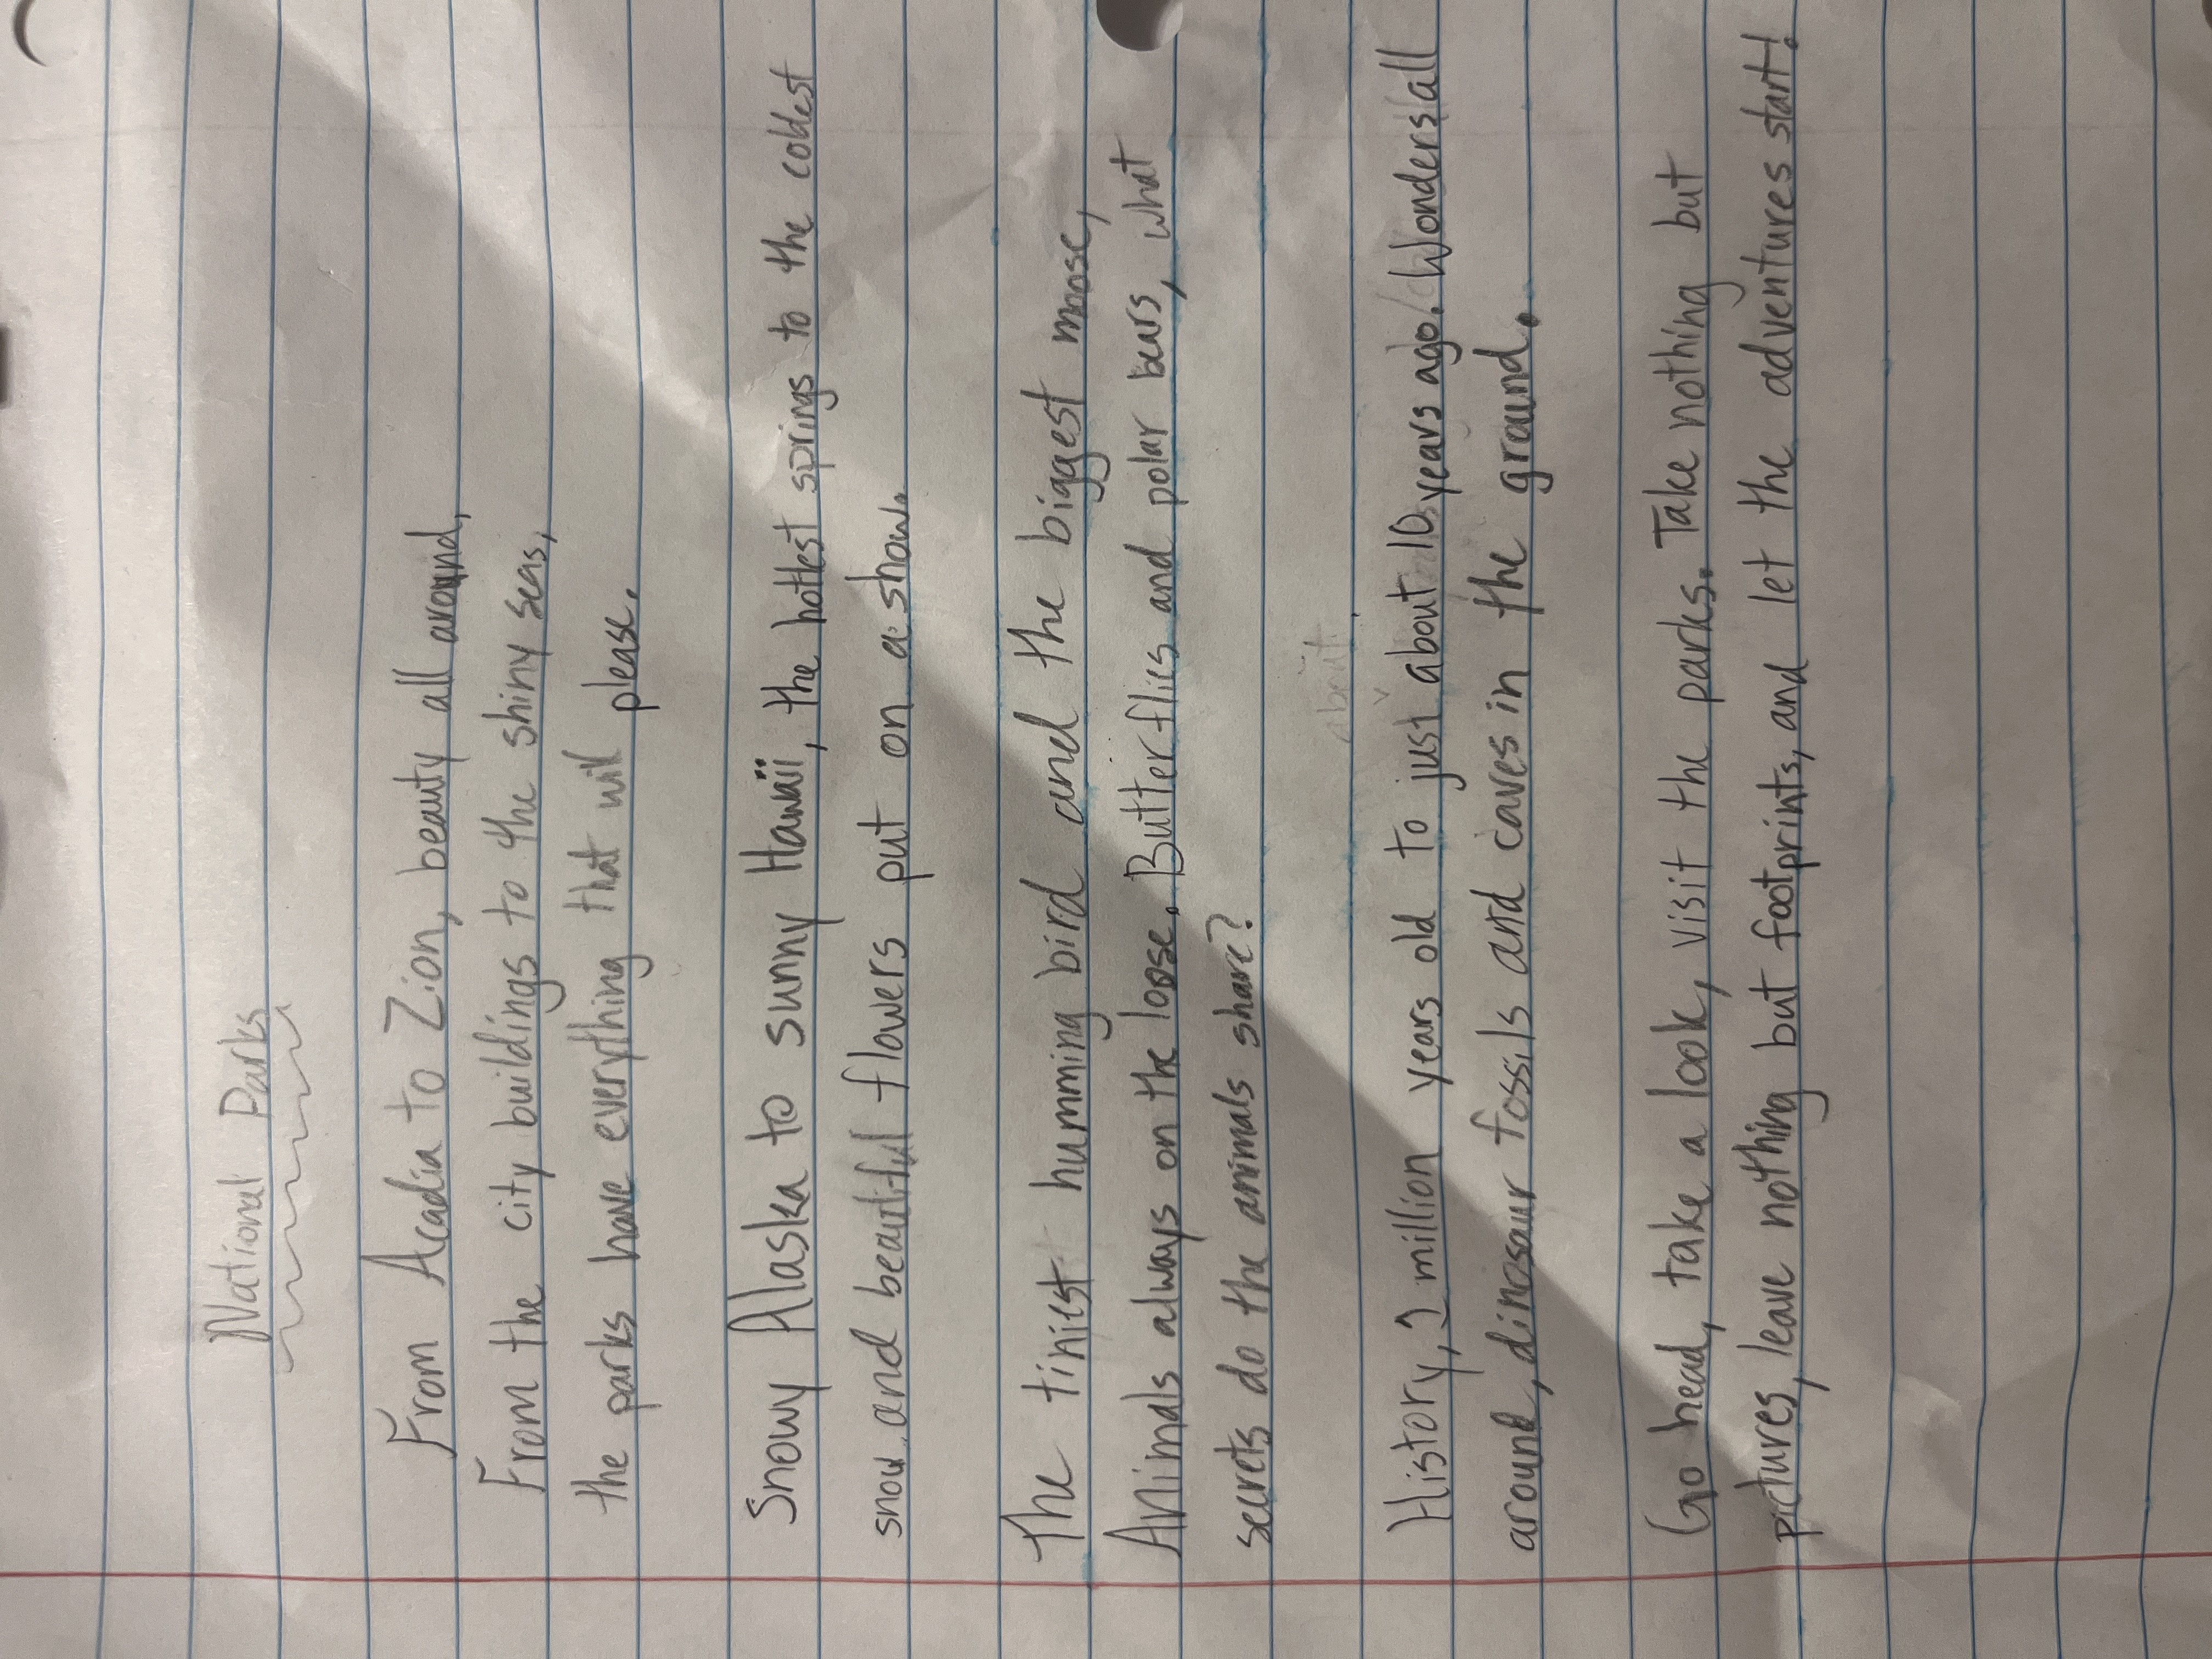 National Parks
From Acadia to Zion, beauty all around,
From the city buildings to the shiny seas,
the parks have everything that will please.
Snowy Alaska to sunny Hawii, the hottest springs to the coldest
snow and beautiful flowers put on a show.
The tiniest humming bird and the biggest moose,
Animals always on the loose. Butterflies and polar bears, what
secrets do the animals share?
about
History, 1 million years old to just about 10 years ago. Wonders all
around, dinosaur fossils and caves in the ground.
Go head, take a look, visit the parks. Take nothing but
pictures, leave nothing but footprints, and let the adventures start!